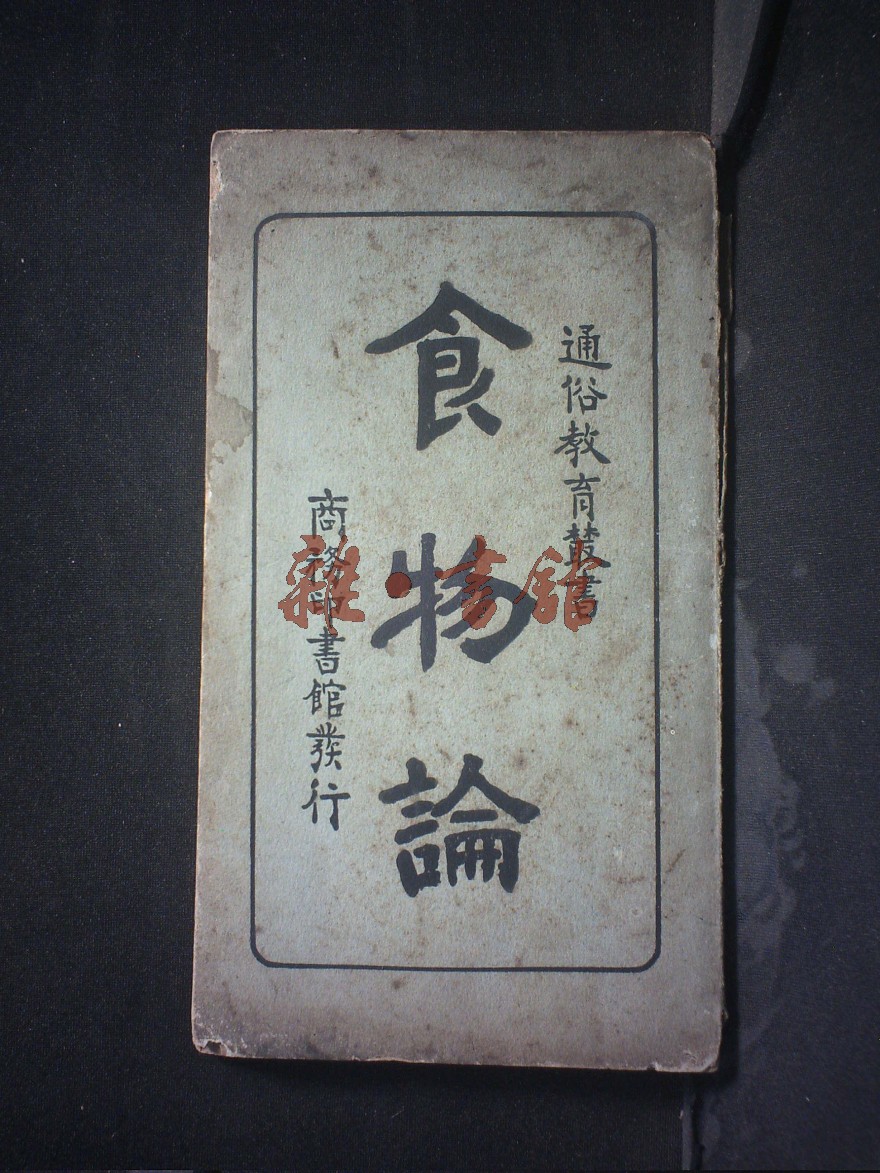 通俗教育叢書
食物論
商務印書館發行
雜·书馆